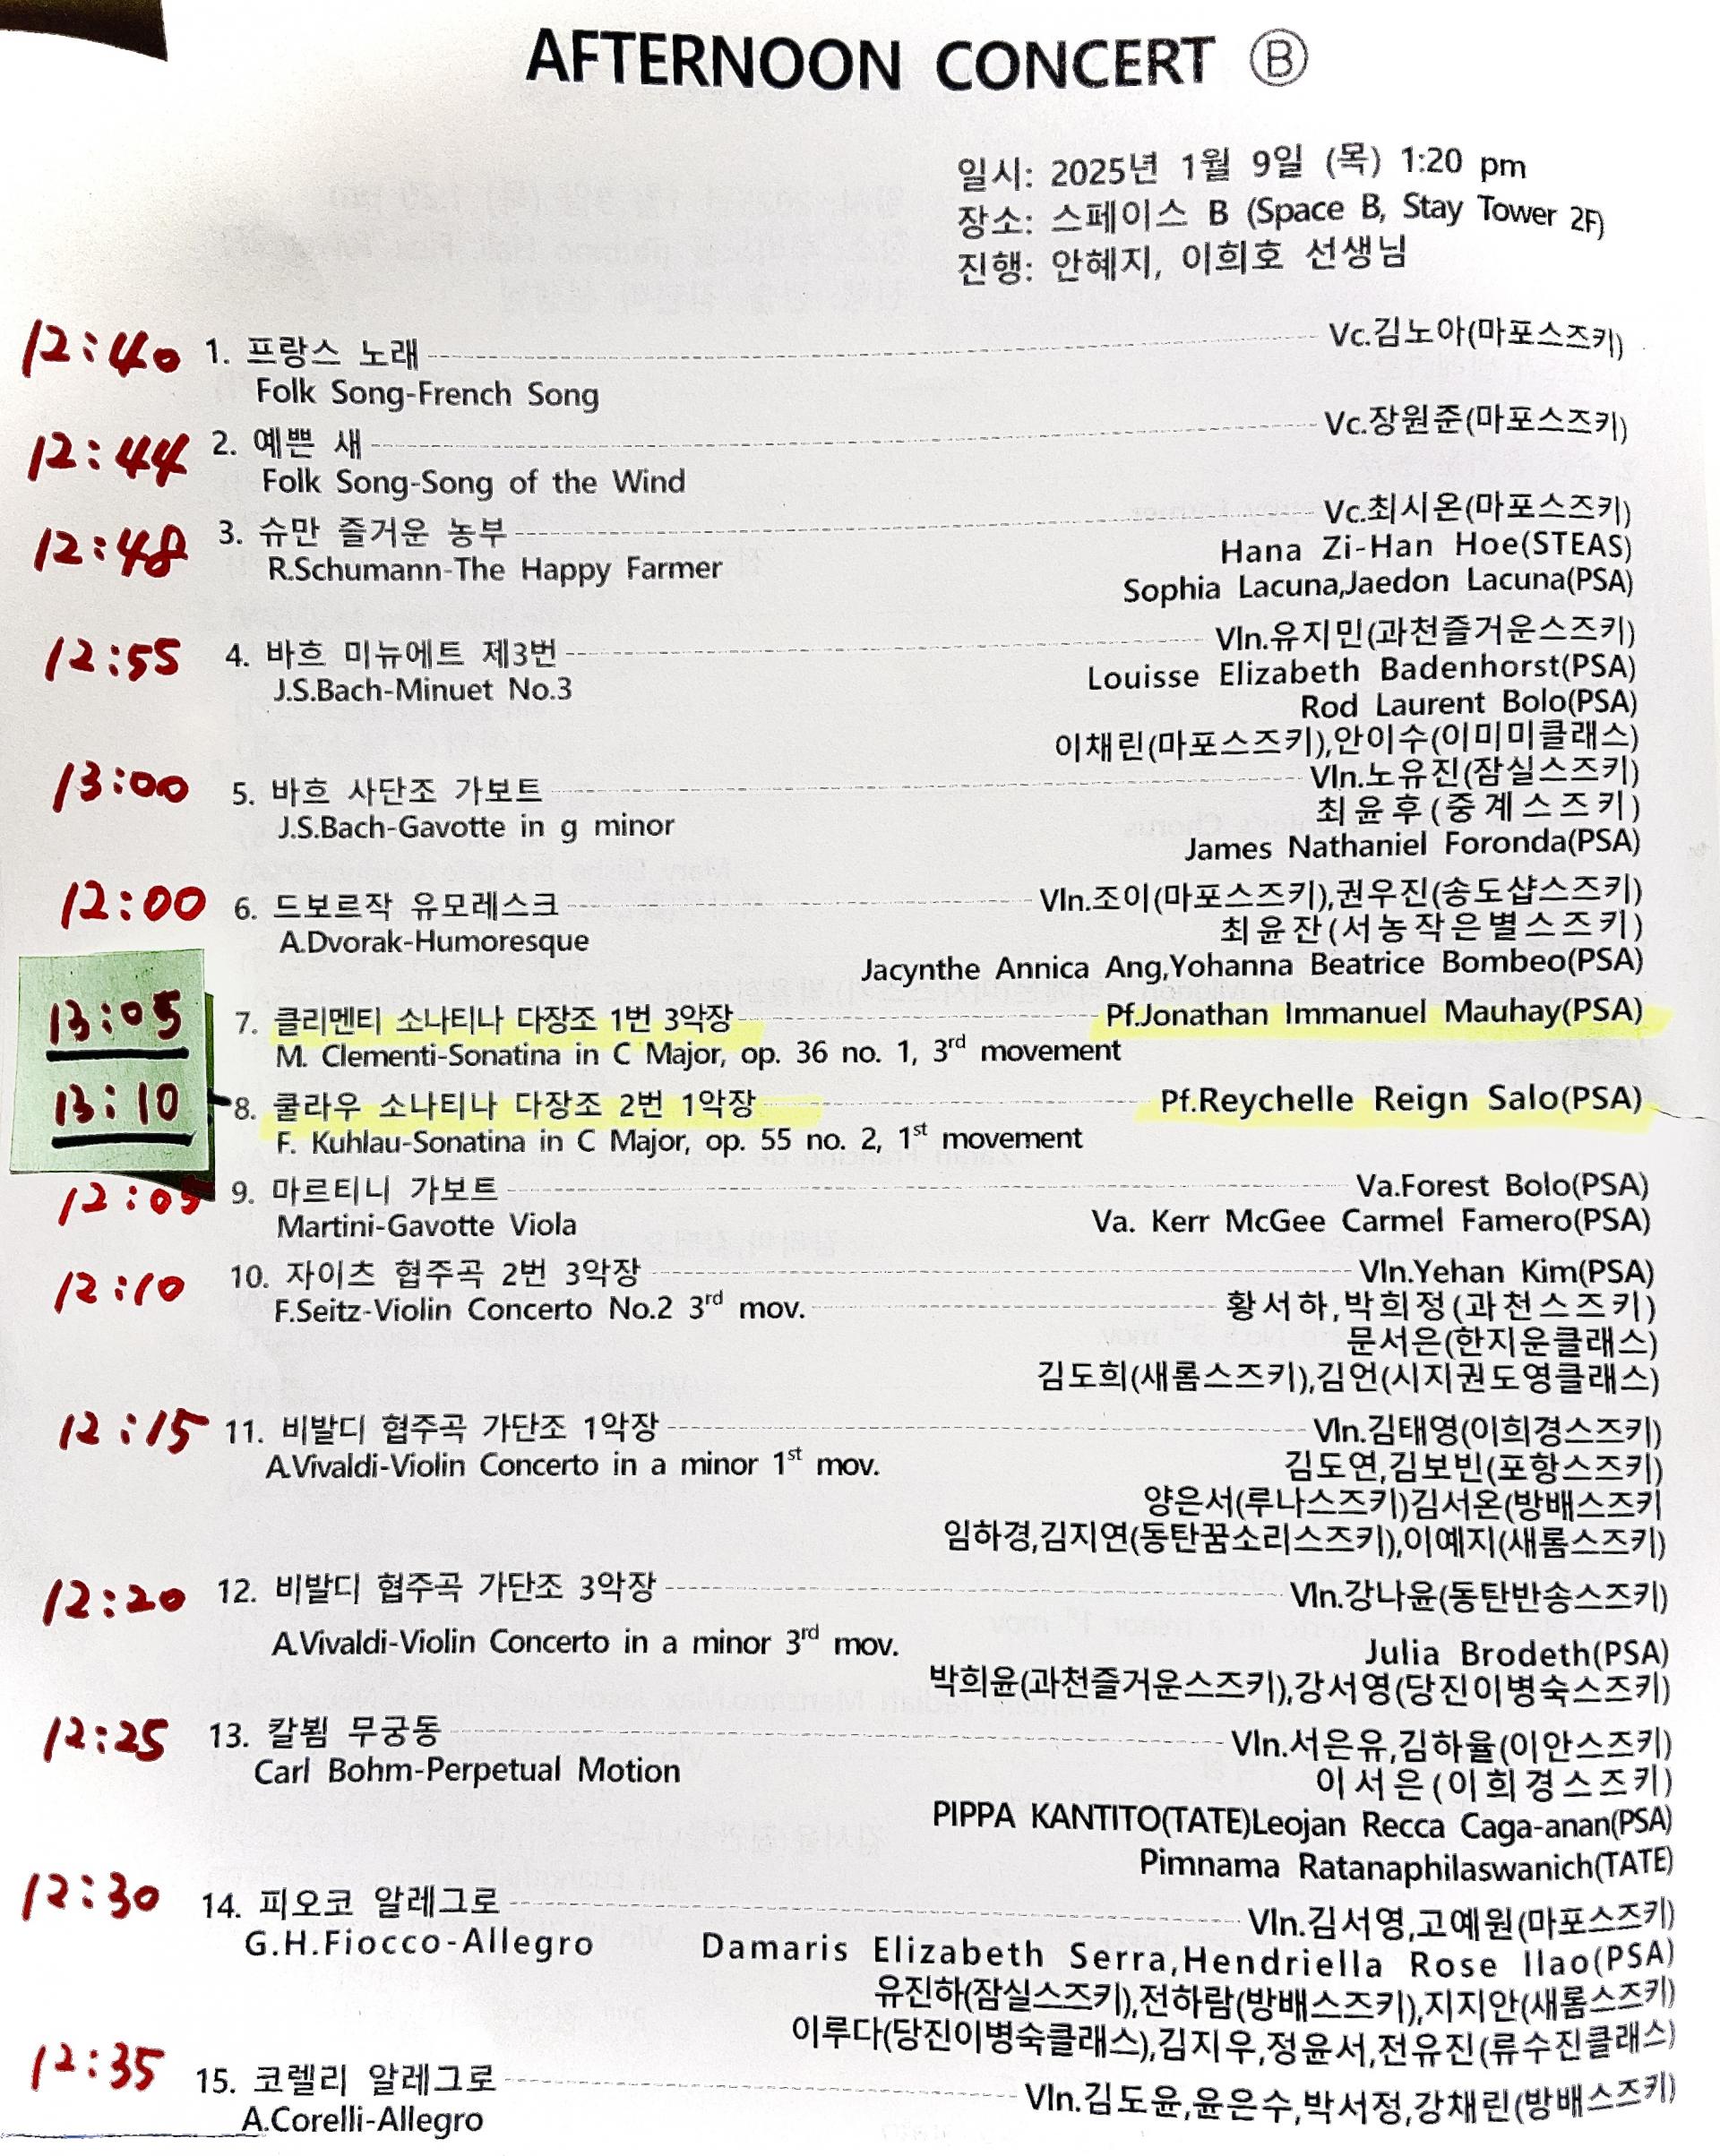 AFTERNOON CONCERT Ⓑ
일시: 2025년 1월 9일 (목) 1:20 pm
장소: 스페이스 B (Space B, Stay Tower 2F)
진행: 안혜지, 이희호 선생님
12:40 1. 프랑스 노래 Vc.김노아(마포스즈키)
Folk Song-French Song
12:44 2. 예쁜 새 Vc.장원준(마포스즈키)
Folk Song-Song of the Wind
12:48 3. 슈만 즐거운 농부 Vc.최시온(마포스즈키)
R.Schumann-The Happy Farmer Hana Zi-Han Hoe(STEAS)
Sophia Lacuna,Jaedon Lacuna(PSA)
12:55 4. 바흐 미뉴에트 제3번 Vln.유지민(과천즐거운스즈키)
J.S.Bach-Minuet No.3 Louisse Elizabeth Badenhorst(PSA)
Rod Laurent Bolo(PSA)
이채린(마포스즈키),안이수(이미미클래스)
13:00 5. 바흐 사단조 가보트 Vln.노유진(잠실스즈키)
J.S.Bach-Gavotte in g minor 최윤후(중계스즈키)
James Nathaniel Foronda(PSA)
12:00 6. 드보르작 유모레스크 Vln.조이(마포스즈키),권우진(송도샵스즈키)
A.Dvorak-Humoresque 최윤잔(서농작은별스즈키)
Jacynthe Annica Ang,Yohanna Beatrice Bombeo(PSA)
13:05 7. 클리멘티 소나티나 다장조 1번 3악장 Pf.Jonathan Immanuel Mauhay(PSA)
M. Clementi-Sonatina in C Major, op. 36 no. 1, 3rd movement
13:10 8. 쿨라우 소나티나 다장조 2번 1악장 Pf.Reychelle Reign Salo(PSA)
F. Kuhlau-Sonatina in C Major, op. 55 no. 2, 1st movement
12:05 9. 마르티니 가보트 Va.Forest Bolo(PSA)
Martini-Gavotte Viola Va. Kerr McGee Carmel Famero(PSA)
12:10 10. 자이츠 협주곡 2번 3악장 Vln.Yehan Kim(PSA)
F.Seitz-Violin Concerto No.2 3rd mov. 황서하,박희정(과천스즈키)
문서은(한지운클래스)
김도희(새롬스즈키),김언(시지권도영클래스)
12:15 11. 비발디 협주곡 가단조 1악장 Vln.김태영(이희경스즈키)
A.Vivaldi-Violin Concerto in a minor 1st mov. 김도연,김보빈(포항스즈키)
양은서(루나스즈키)김서온(방배스즈키
임하경,김지연(동탄꿈소리스즈키),이예지(새롬스즈키)
12:20 12. 비발디 협주곡 가단조 3악장 Vln.강나윤(동탄반송스즈키)
A.Vivaldi-Violin Concerto in a minor 3rd mov. Julia Brodeth(PSA)
박희윤(과천즐거운스즈키),강서영(당진이병숙스즈키)
12:25 13. 칼뵘 무궁동 Vln.서은유,김하율(이안스즈키)
Carl Bohm-Perpetual Motion 이서은(이희경스즈키)
PIPPA KANTITO(TATE)Leojan Recca Caga-anan(PSA)
Pimnama Ratanaphilaswanich(TATE)
12:30 14. 피오코 알레그로 Vln.김서영,고예원(마포스즈키)
G.H.Fiocco-Allegro Damaris Elizabeth Serra,Hendriella Rose Ilao(PSA)
유진하(잠실스즈키),전하람(방배스즈키),지지안(새롬스즈키)
이루다(당진이병숙클래스),김지우,정윤서,전유진(류수진클래스)
12:35 15. 코렐리 알레그로 Vln.김도윤,윤은수,박서정,강채린(방배스즈키)
A.Corelli-Allegro